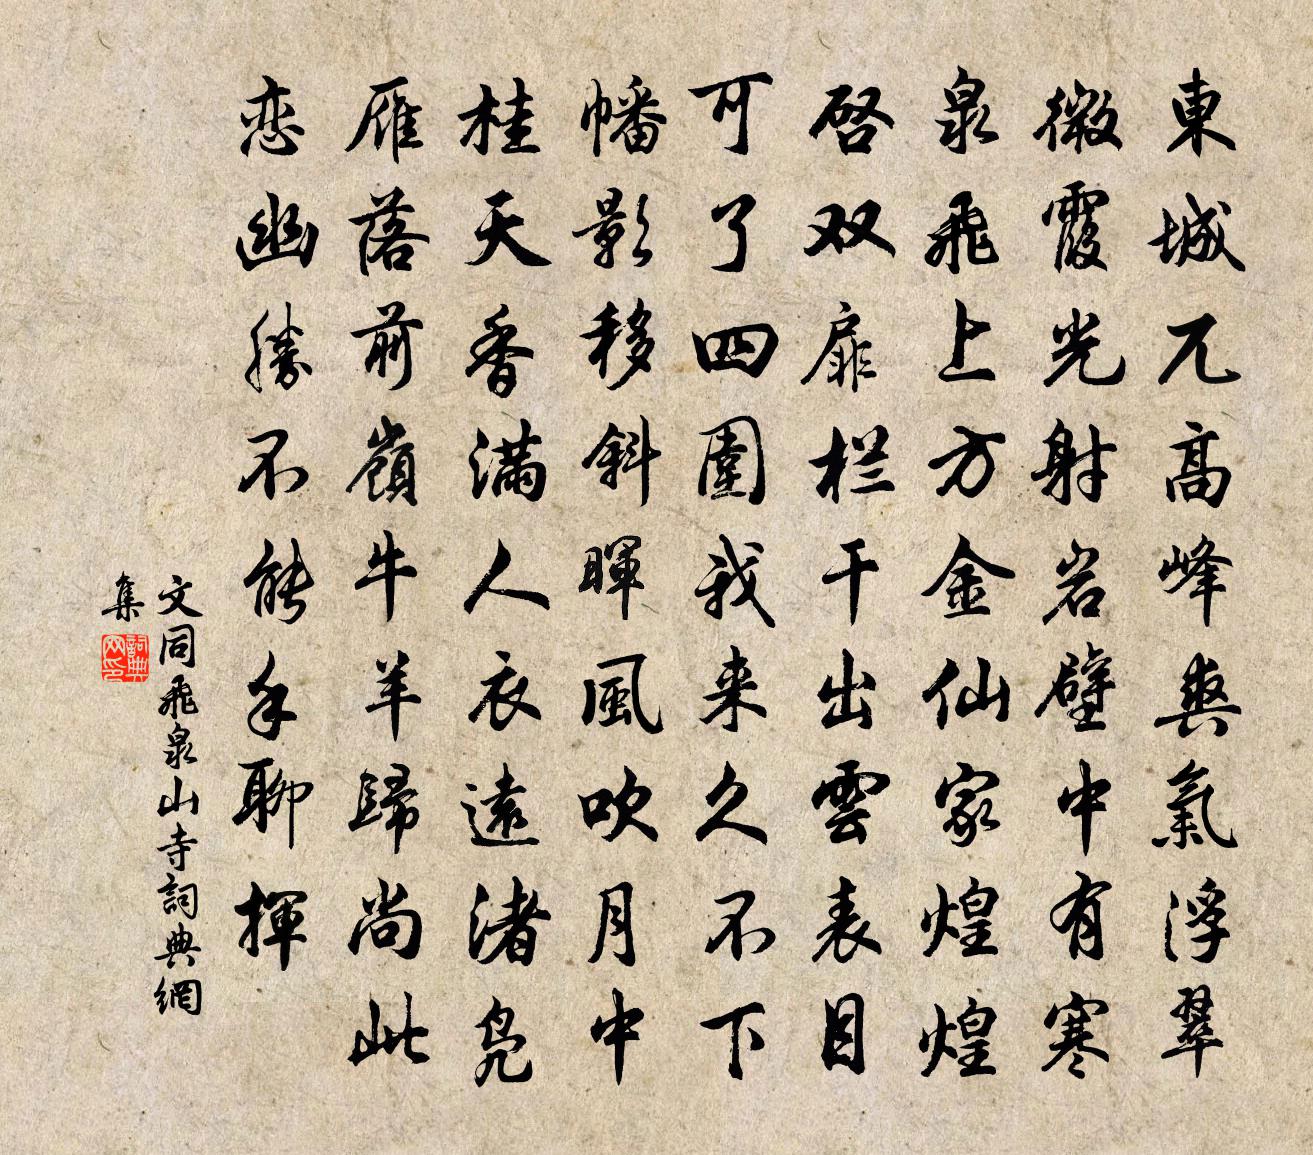 東城兀高峰爽氣浮翠
微霞光射岩壁中有寒
泉飛上方金仙家煌煌
啓双扉栏干出雲表目
可了四圍我来久不下
幡影移斜暉風吹月中
桂天香滿人衣遠渚凫
雁落前嶺牛羊歸尚此
恋幽勝不能手聊揮
文同飛泉山寺詞典網
集
詞典网印